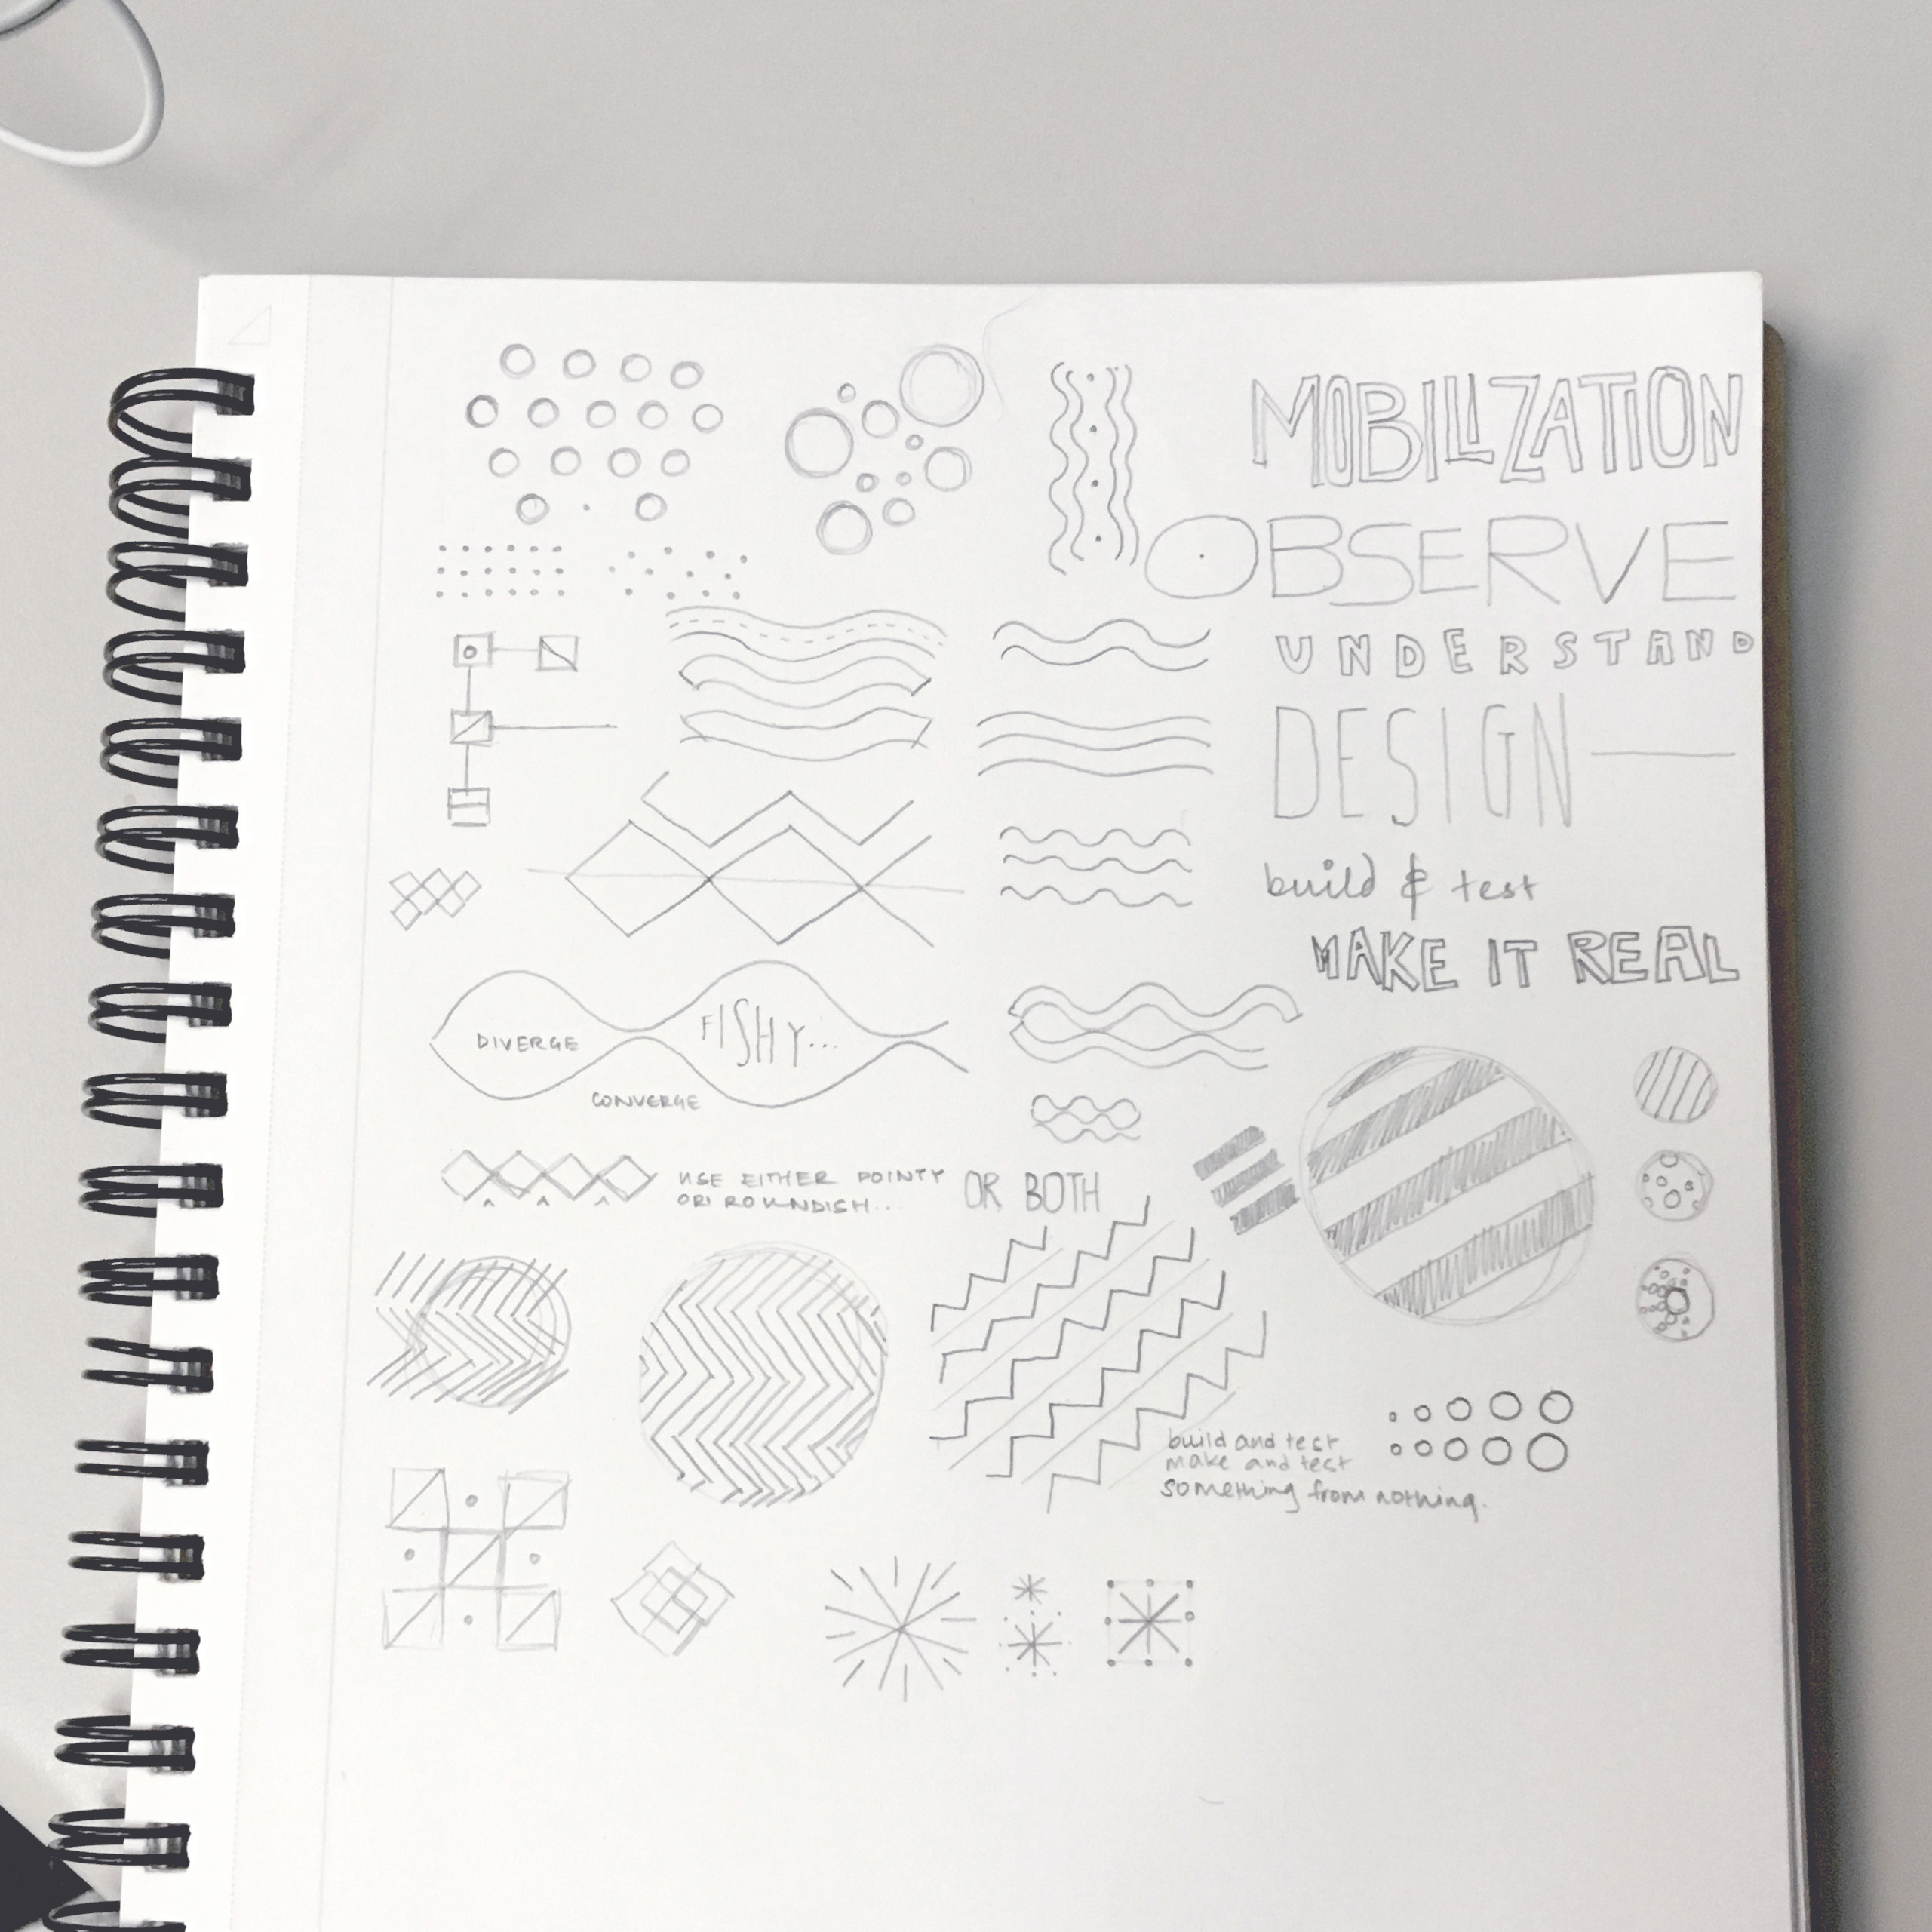 MOBILIZATION
OBSERVE
UNDERSTAND
DESIGN
build & test
MAKE IT REAL
DIVERGE
FISHY...
CONVERGE
USE EITHER POINTY
OR ROUNDISH...
OR BOTH
build and test
make and test
something from nothing.